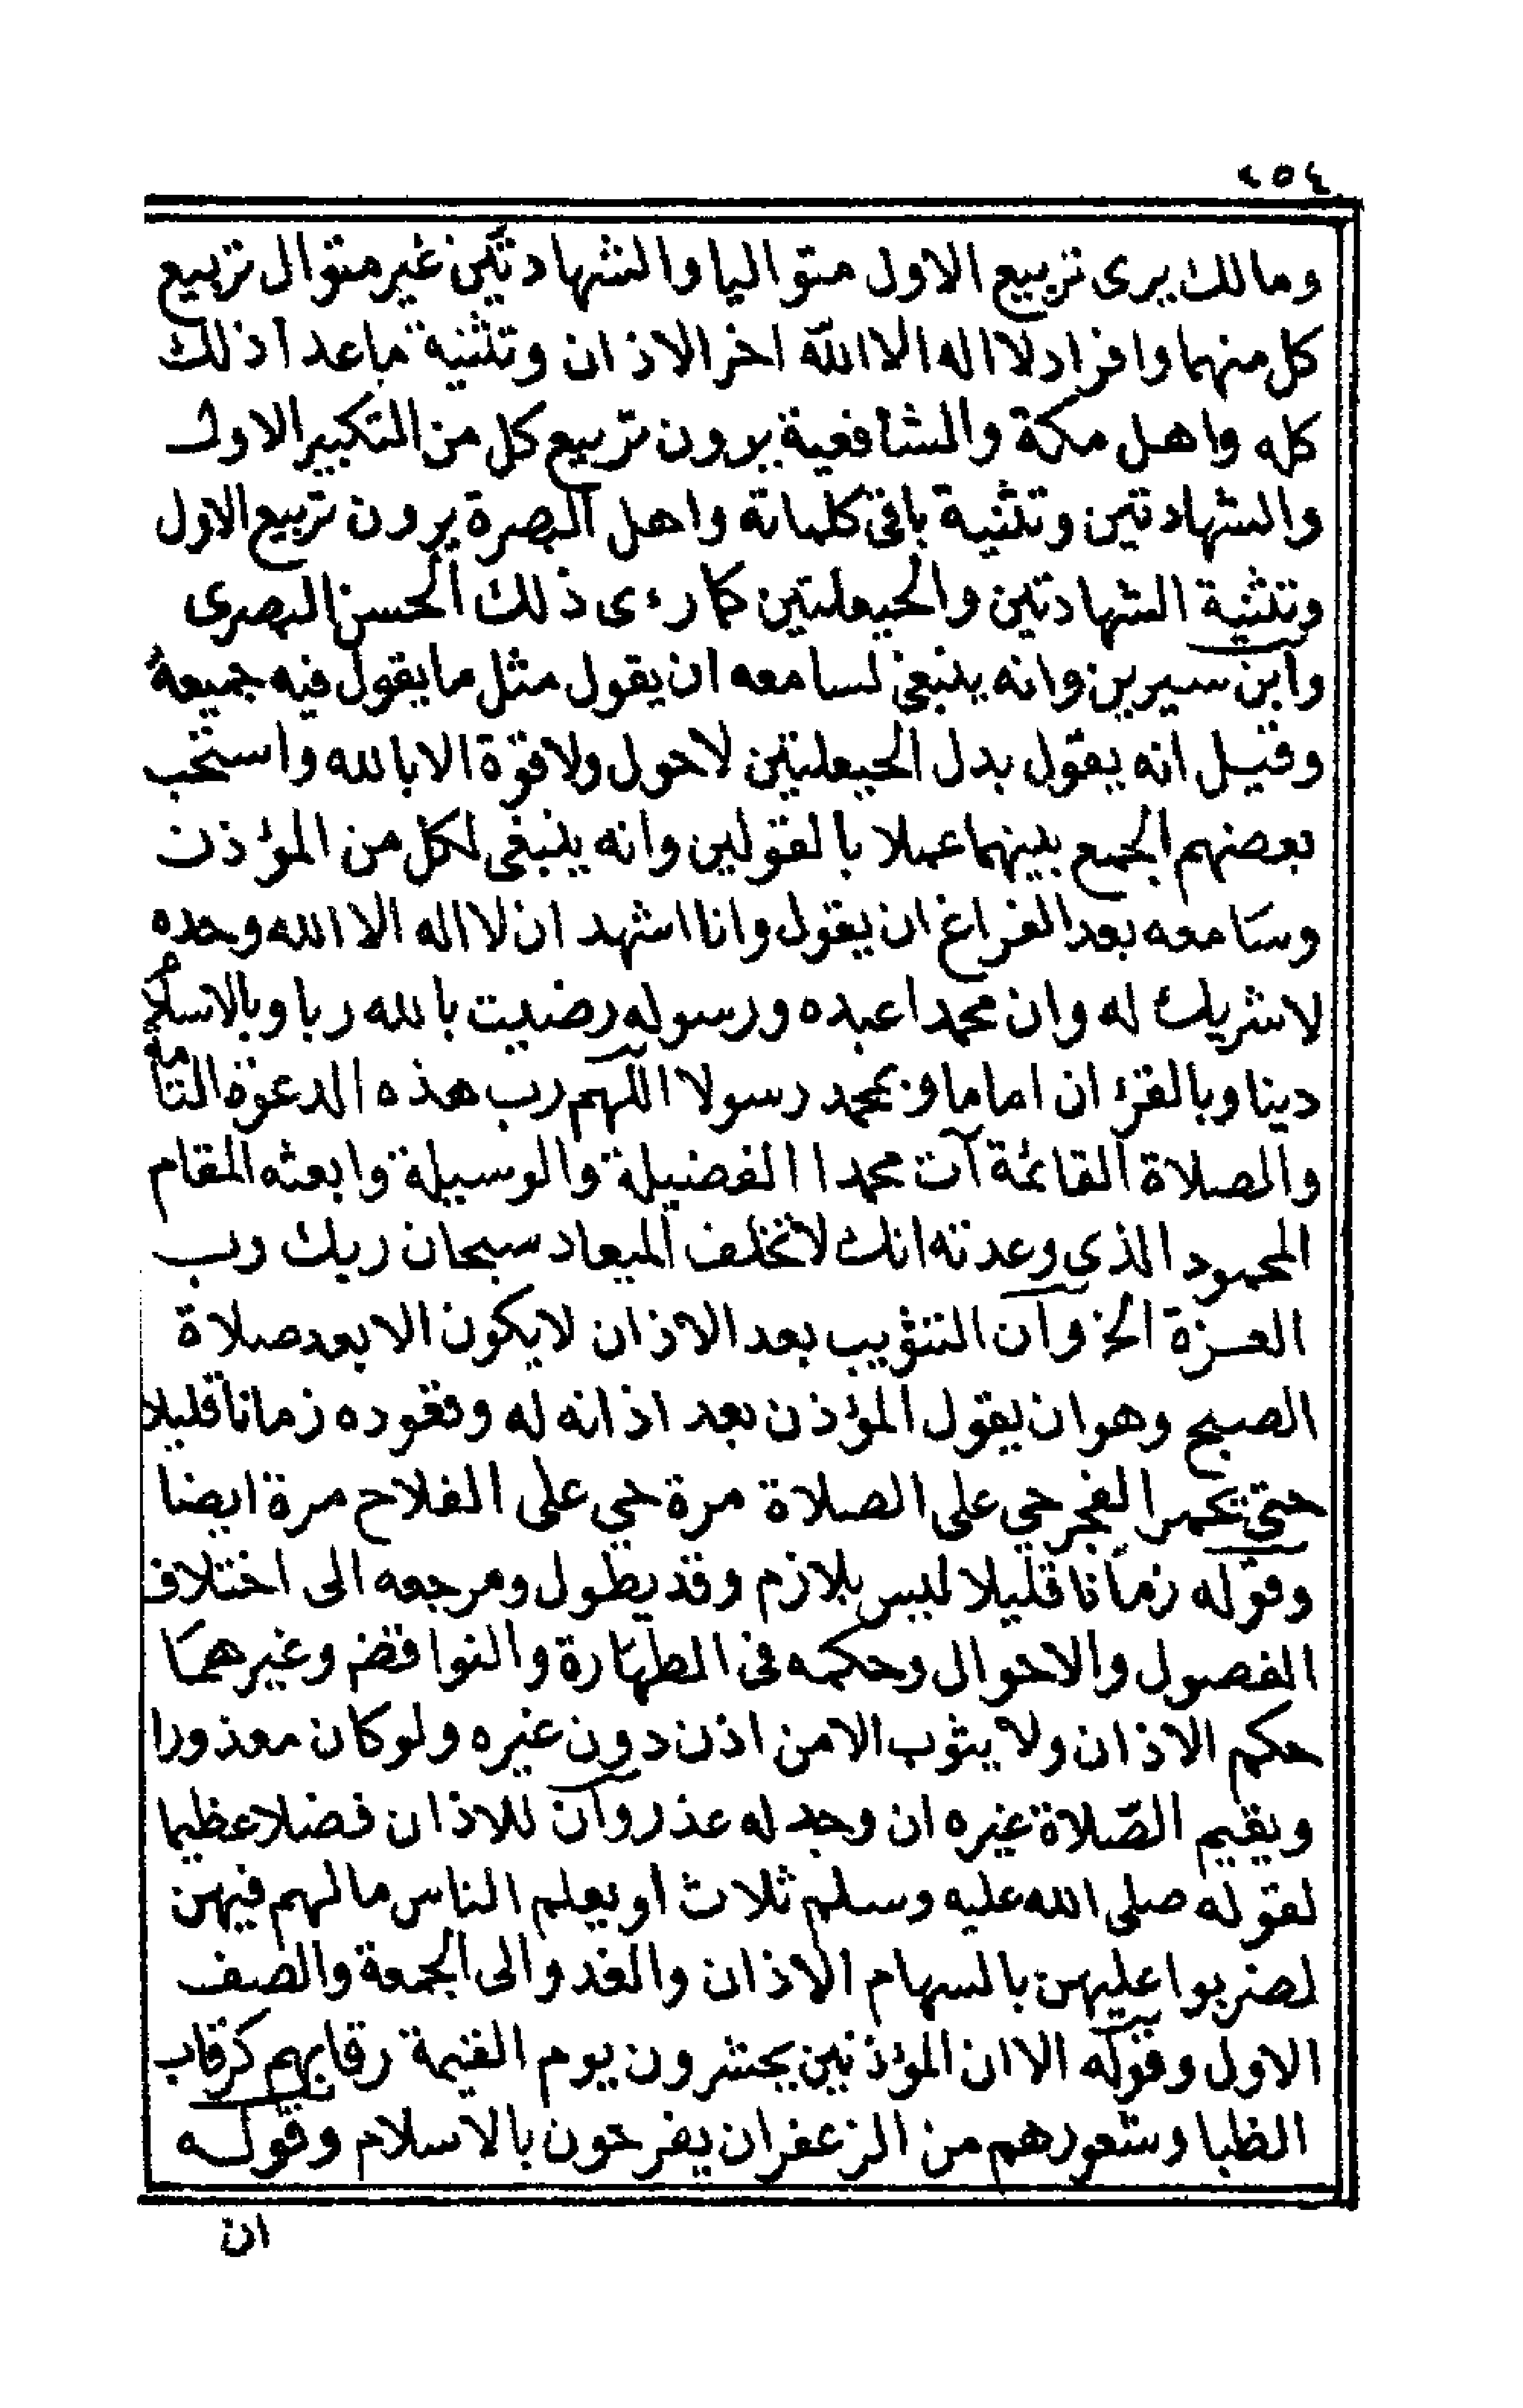 ٤٥٤
ومالك يرى تربيع الاول متواليا والشهادتين غير متوال تربيع
كل منهما وافراد لا اله الا الله اخر الاذان وتثنية ماعدا ذلك
كله واهل مكة والشافعية يرون تربيع كل من التكبير الاول
والشهادتين وتثنية باقى كلماته واهل البصرة يرون تربيع الاول
وتثنية الشهادتين والحيعلتين كما رءى ذلك الحسن البصرى
وابن سيرين وانه ينبغى لسامعه ان يقول مثل ما يقول فيه جميعه
وقيل انه يقول بدل الحيعلتين لاحول ولا قوة الا بالله واستحب
بعضهم الجمع بينهما عملا بالقولين وانه ينبغى لكل من المؤذن
وسامعه بعد الفراغ ان يقول وانا اشهد ان لا اله الا الله وحده
لا شريك له وان محمدا عبده ورسوله رضيت بالله ربا وبالاسلام
دينا وبالقرءان اماما وبمحمد رسولا اللهم رب هذه الدعوة التامة
والصلاة القائمة آت محمدا الفضيلة والوسيلة وابعثه المقام
المحمود الذي وعدته انك لا تخلف الميعاد سبحان ربك رب
العزة الخ وان التثويب بعد الاذان لا يكون الا بعد صلاة
الصبح وهو ان يقول المؤذن بعد اذانه له وقعوده زمانا قليلا
حتى تحمر الفجر حي على الصلاة مرة حي على الفلاح مرة ايضا
وقوله زمانا قليلا ليس بلازم وقد يطول ومرجعه الى اختلاف
الفصول والاحوال وحكمه فى الطهارة والنواقض وغيرهما
حكم الاذان ولا يثوب الا من اذن دون غيره ولو كان معذورا
ويقيم الصلاة غيره ان وجد له عذر وان للاذان فضلا عظيما
لقوله صلى الله عليه وسلم ثلاث او يعلم الناس ما لهم فيهن
لضربوا عليهن بالسهام الاذان والغدو الى الجمعة والصف
الاول وقوله الا ان المؤذنين يحشرون يوم القيمة رقابهم كرقاب
الظبا وشعورهم من الزعفران يفرحون بالاسلام وقوله
ان